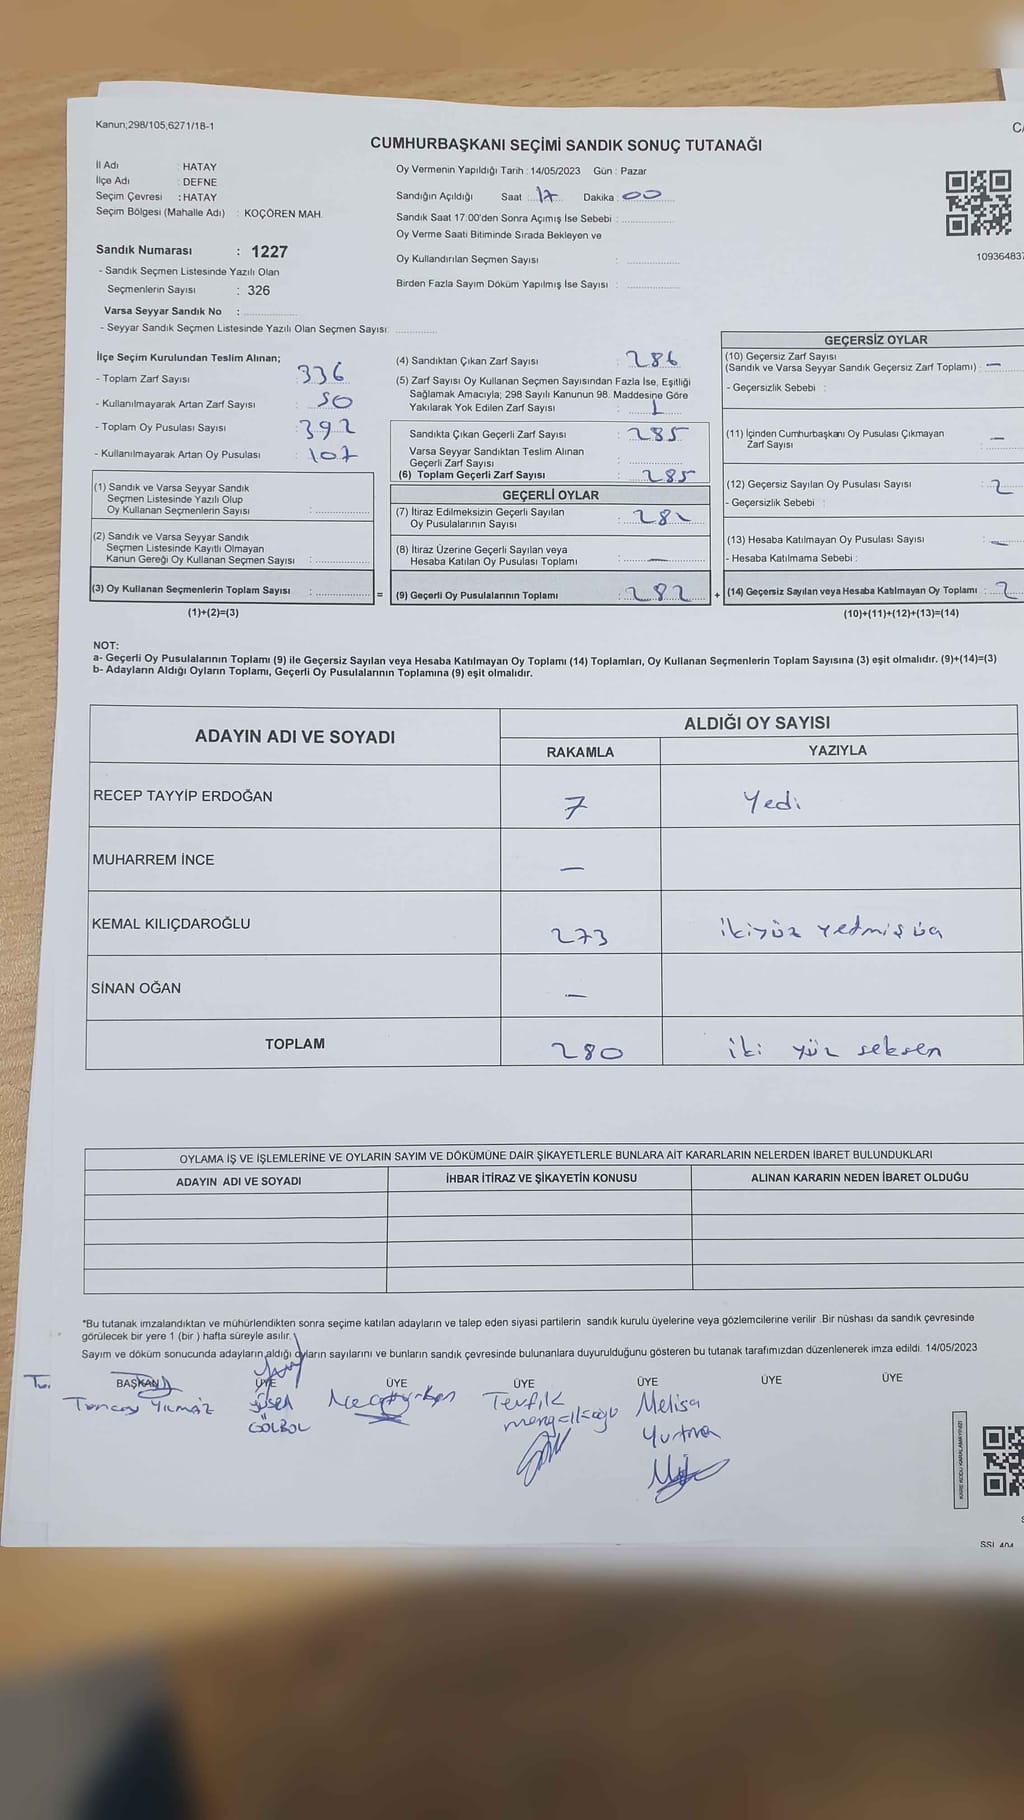 Kanun;298/105,6271/18-1
CUMHURBAŞKANI SEÇİMİ SANDIK SONUÇ TUTANAĞI
İl Adı : HATAY
İlçe Adı : DEFNE
Seçim Çevresi : HATAY
Seçim Bölgesi (Mahalle Adı) : KOÇÖREN MAH.
Oy Vermenin Yapıldığı Tarih : 14/05/2023 Gün : Pazar
Sandığın Açıldığı Saat : 17 Dakika : 00
Sandık Saat 17.00'den Sonra Açımış İse Sebebi :
Oy Verme Saati Bitiminde Sırada Bekleyen ve
Oy Kullandırılan Seçmen Sayısı :
Birden Fazla Sayım Döküm Yapılmış İse Sayısı :
Sandık Numarası : 1227
- Sandık Seçmen Listesinde Yazılı Olan
Seçmenlerin Sayısı : 326
Varsa Seyyar Sandık No :
- Seyyar Sandık Seçmen Listesinde Yazılı Olan Seçmen Sayısı:
İlçe Seçim Kurulundan Teslim Alınan;
- Toplam Zarf Sayısı : 336
- Kullanılmayarak Artan Zarf Sayısı : 50
- Toplam Oy Pusulası Sayısı : 392
- Kullanılmayarak Artan Oy Pusulası : 107
(1) Sandık ve Varsa Seyyar Sandık
Seçmen Listesinde Yazılı Olup
Oy Kullanan Seçmenlerin Sayısı :
(2) Sandık ve Varsa Seyyar Sandık
Seçmen Listesinde Kayıtlı Olmayan
Kanun Gereği Oy Kullanan Seçmen Sayısı :
(3) Oy Kullanan Seçmenlerin Toplam Sayısı : =
(1)+(2)=(3)
(4) Sandıktan Çıkan Zarf Sayısı : 286
(5) Zarf Sayısı Oy Kullanan Seçmen Sayısından Fazla İse, Eşitliği
Sağlamak Amacıyla; 298 Sayılı Kanunun 98. Maddesine Göre
Yakılarak Yok Edilen Zarf Sayısı : 1
Sandıkta Çıkan Geçerli Zarf Sayısı : 285
Varsa Seyyar Sandıktan Teslim Alınan
Geçerli Zarf Sayısı :
(6) Toplam Geçerli Zarf Sayısı : 285
GEÇERLİ OYLAR
(7) İtiraz Edilmeksizin Geçerli Sayılan
Oy Pusulalarının Sayısı : 282
(8) İtiraz Üzerine Geçerli Sayılan veya
Hesaba Katılan Oy Pusulası Toplamı : —
(9) Geçerli Oy Pusulalarının Toplamı : 282 +
GEÇERSİZ OYLAR
(10) Geçersiz Zarf Sayısı
(Sandık ve Varsa Seyyar Sandık Geçersiz Zarf Toplamı) : —
- Geçersizlik Sebebi :
(11) İçinden Cumhurbaşkanı Oy Pusulası Çıkmayan
Zarf Sayısı : —
(12) Geçersiz Sayılan Oy Pusulası Sayısı : 2
- Geçersizlik Sebebi :
(13) Hesaba Katılmayan Oy Pusulası Sayısı : —
- Hesaba Katılmama Sebebi :
(14) Geçersiz Sayılan veya Hesaba Katılmayan Oy Toplamı : 2
(10)+(11)+(12)+(13)=(14)
NOT:
a- Geçerli Oy Pusulalarının Toplamı (9) ile Geçersiz Sayılan veya Hesaba Katılmayan Oy Toplamı (14) Toplamları, Oy Kullanan Seçmenlerin Toplam Sayısına (3) eşit olmalıdır. (9)+(14)=(3)
b- Adayların Aldığı Oyların Toplamı, Geçerli Oy Pusulalarının Toplamına (9) eşit olmalıdır.
ADAYIN ADI VE SOYADI
ALDIĞI OY SAYISI
RAKAMLA YAZIYLA
RECEP TAYYİP ERDOĞAN 7 Yedi
MUHARREM İNCE —
KEMAL KILIÇDAROĞLU 273 ikiyüz yetmiş üç
SİNAN OĞAN —
TOPLAM 280 iki yüz seksen
OYLAMA İŞ VE İŞLEMLERİNE VE OYLARIN SAYIM VE DÖKÜMÜNE DAİR ŞİKAYETLERLE BUNLARA AİT KARARLARIN NELERDEN İBARET BULUNDUKLARI
ADAYIN ADI VE SOYADI İHBAR İTİRAZ VE ŞİKAYETİN KONUSU ALINAN KARARIN NEDEN İBARET OLDUĞU
*Bu tutanak imzalandıktan ve mühürlendikten sonra seçime katılan adayların ve talep eden siyasi partilerin sandık kurulu üyelerine veya gözlemcilerine verilir. Bir nüshası da sandık çevresinde
görülecek bir yere 1 (bir ) hafta süreyle asılır.
Sayım ve döküm sonucunda adayların aldığı oyların sayılarını ve bunların sandık çevresinde bulunanlara duyurulduğunu gösteren bu tutanak tarafımızdan düzenlenerek imza edildi. 14/05/2023
BAŞKAN ÜYE ÜYE ÜYE ÜYE ÜYE ÜYE
Tuncay YILMAZ
GÖLBOL
Tevfik
Melisa
KARE KODU KARALAMAYINIZ!